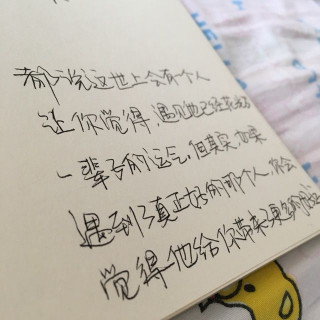 都说这世上会有个人
让你觉得，遇见她已经花光了
一辈子的运气，但其实，如果
遇到了真正好的那个人，你会
觉得他给你带来了更多的好运